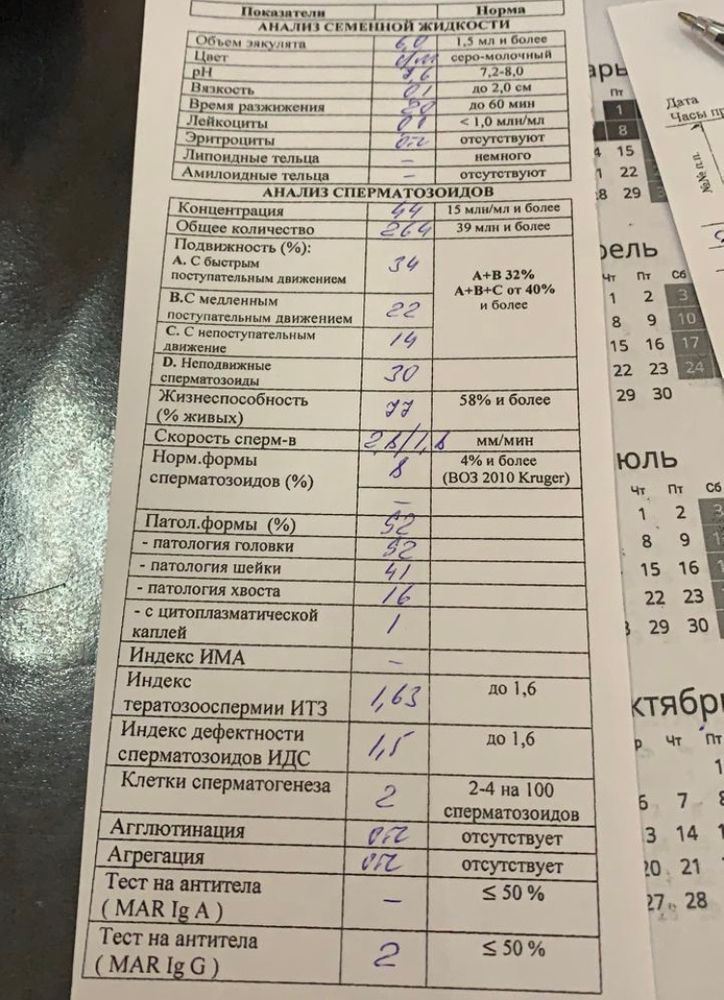 Показатели Норма
АНАЛИЗ СЕМЕННОЙ ЖИДКОСТИ
Объем эякулята 6,0 1,5 мл и более
Цвет с/м серо-молочный
pH 7,6 7,2-8,0
Вязкость 0,1 до 2,0 см
Время разжижения 20 до 60 мин
Лейкоциты 0,1 < 1,0 млн/мл
Эритроциты отс отсутствуют
Липоидные тельца – немного
Амилоидные тельца – отсутствуют
АНАЛИЗ СПЕРМАТОЗОИДОВ
Концентрация 44 15 млн/мл и более
Общее количество 264 39 млн и более
Подвижность (%):
А. С быстрым
поступательным движением 34
А+В 32%
А+В+С от 40%
и более
В.С медленным
поступательным движением 22
С. С непоступательным
движение 14
D. Неподвижные
сперматозоиды 30
Жизнеспособность
(% живых) 77 58% и более
Скорость сперм-в мм/мин
Норм.формы
сперматозоидов (%) 8 4% и более
(ВОЗ 2010 Kruger)
–
Патол.формы (%) 92
- патология головки 92
- патология шейки 41
- патология хвоста 16
- с цитоплазматической
каплей 1
Индекс ИМА –
Индекс
тератозооспермии ИТЗ 1,63 до 1,6
Индекс дефектности
сперматозоидов ИДС 1,5 до 1,6
Клетки сперматогенеза 2 2-4 на 100
сперматозоидов
Агглютинация отс отсутствует
Агрегация отс отсутствует
Тест на антитела
( MAR Ig A ) – ≤ 50 %
Тест на антитела
( MAR Ig G ) 2 ≤ 50 %
Дата
Часы пр
№№ п.п.
арь
Пт
1
8
4 15
1 22
8 29
рель
Чт Пт Сб
1 2 3
8 9 10
15 16 17
22 23 24
29 30
юль
Чт Пт Сб
1 2 3
8 9
15 16
22 23
29 30
ктябрь
Чт Пт
1
6 7 8
3 14 1
20 21
27 28